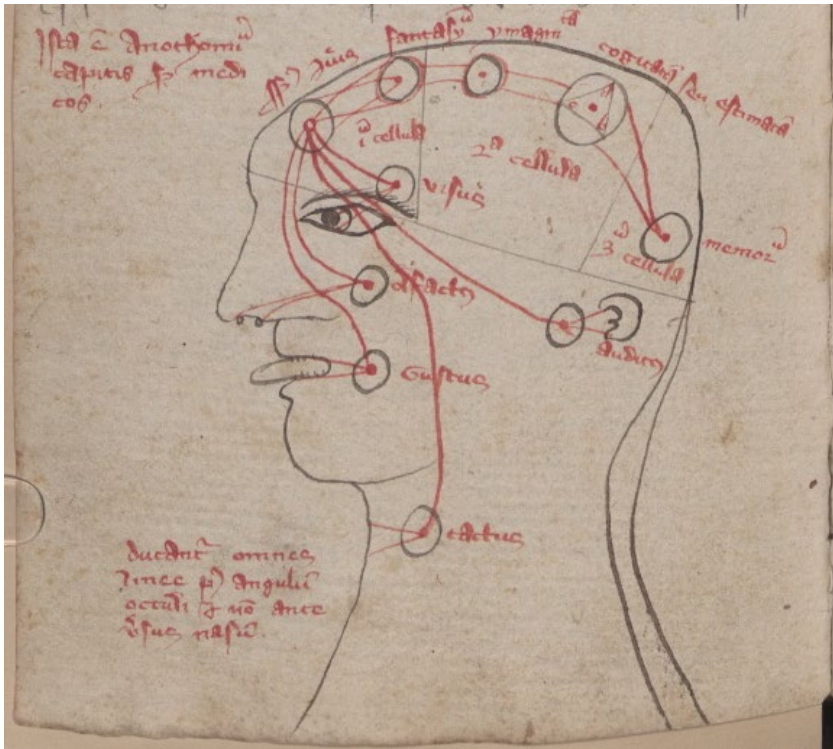 Ista ē Anothomiᵃ
capitis ꝑ medi
cos.
fantasyᵃ ymaginᵗᵃ cogitatīᵃ seu estimatīᵃ
1ᵃ cellula
2ᵃ cellula
3ᵃ cellula
memorᵃ
visus
olfactus
auditus
Gustus
tactus
ducant᷑ omnes
linee ꝑ angulū
occuli ⁊ nō ante
v̓sus nasū.